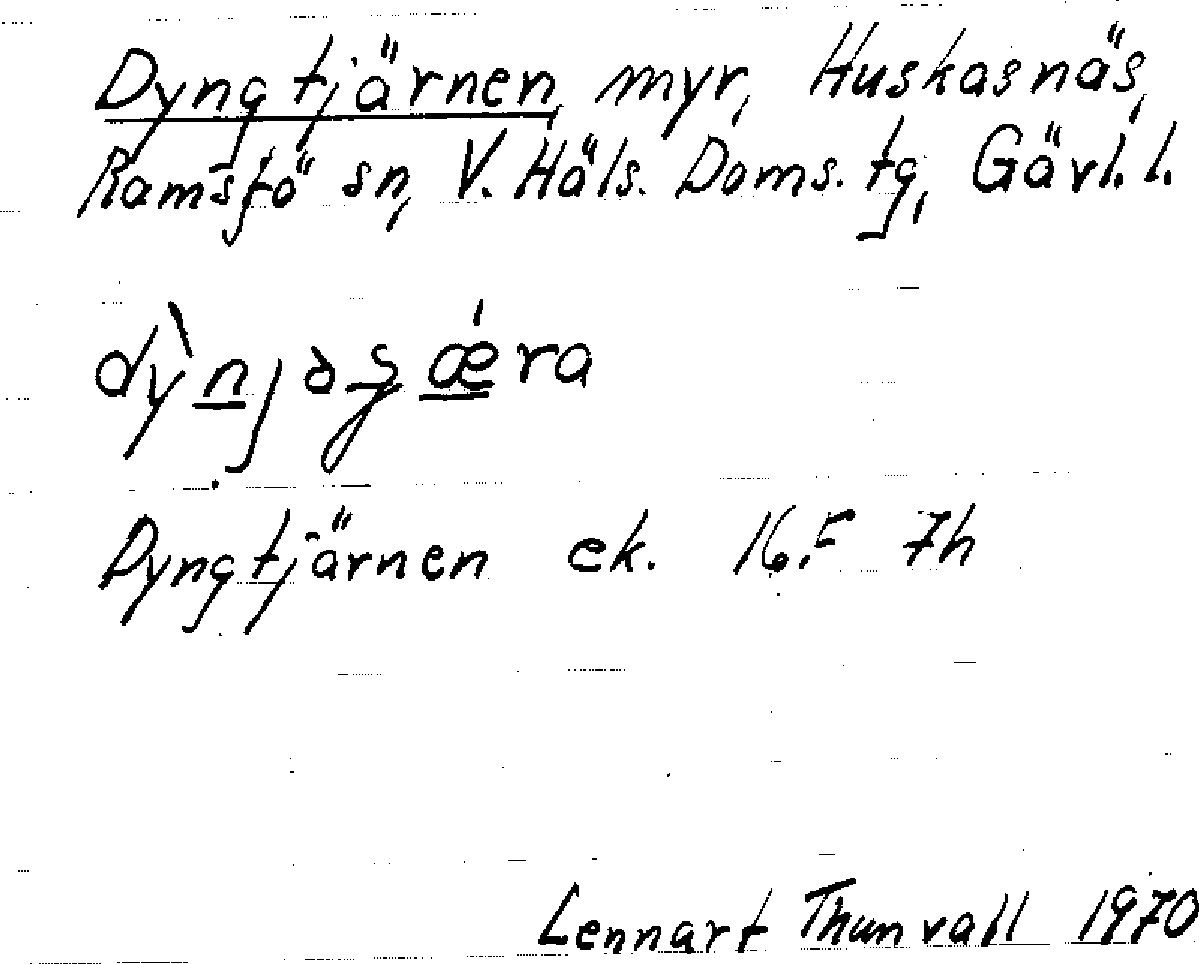 Dyngtjärnen, myr, Huskasnäs,
Ramsjö sn, V. Häls. Doms. tg, Gävl. l.
Dyngtjärnen ek. 16.F 7h
Lennart Thunvall 1970